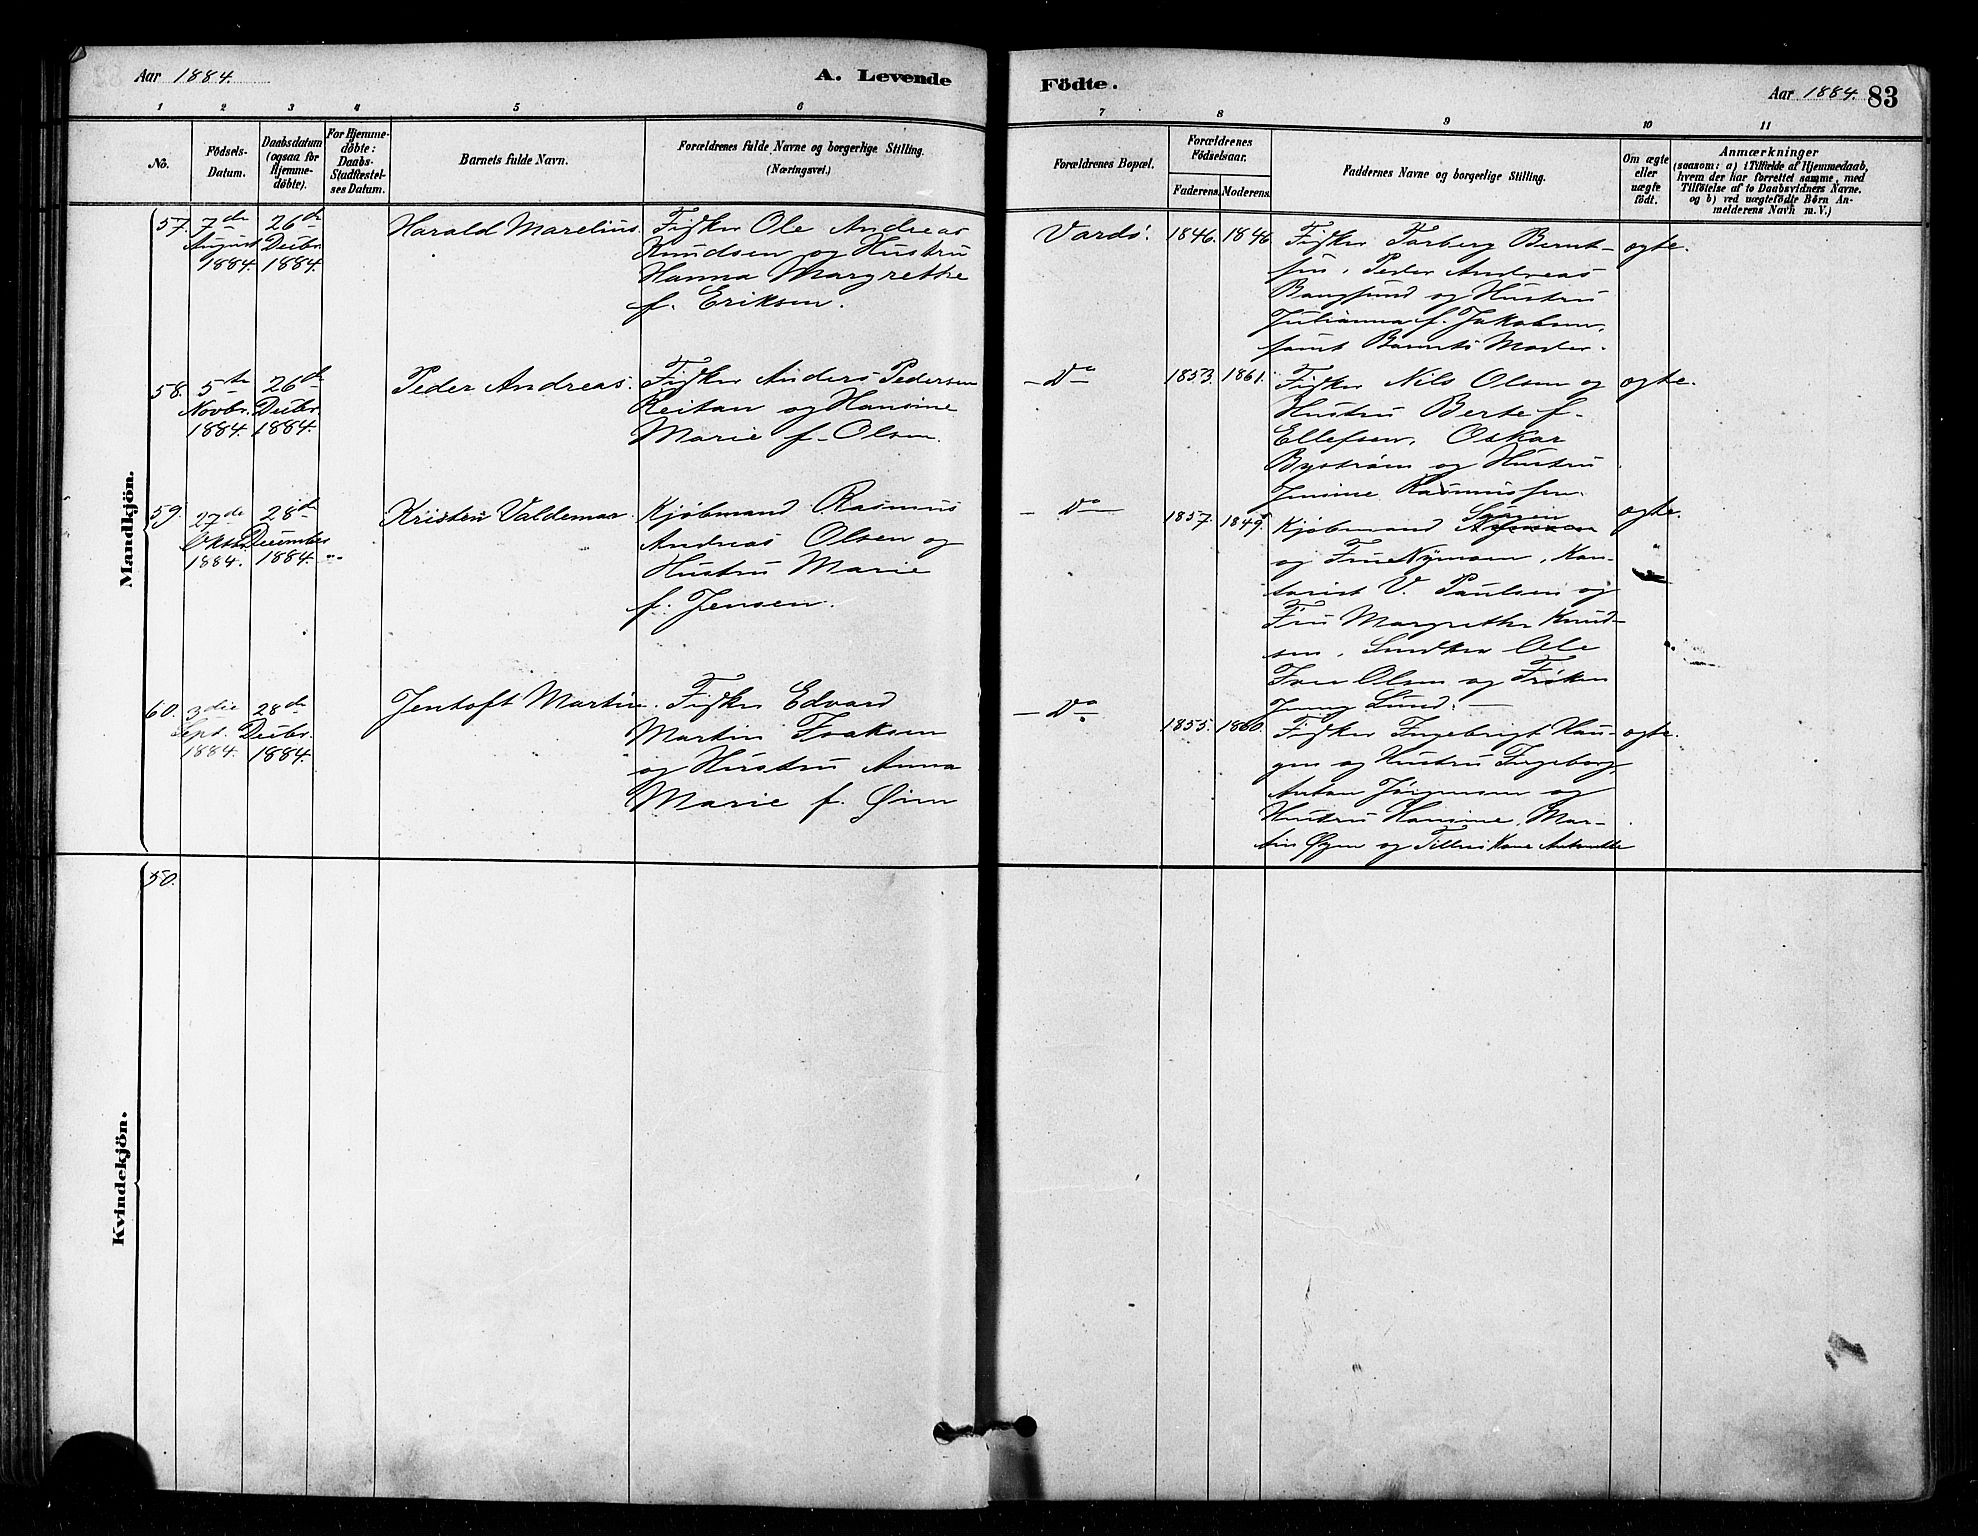 Aar 1884.
A. Levende
Födte.
Aar 1884. 83
1 2 3 4 5 6 7 8 9 10 11
No.
Födsels-
Datum.
Daabsdatum
(ogsaa for
Hjemme-
døbte).
For Hjemme-
døbte:
Daabs-
Stadfæstel-
ses Datum.
Barnets fulde Navn.
Forældrenes fulde Navne og borgerlige Stilling.
(Næringsvei.)
Forældrenes Bopæl.
Forældrenes
Födselsaar.
Faderens. Moderens.
Faddernes Navne og borgerlige Stilling.
Om ægte
eller
uægte
födt.
Anmærkninger
(saasom: a) i Tilfælde af Hjemmedaab,
hvem der har forrettet samme, med
Tilføielse af to Daabsvidners Navne.
og b) ved uægtefödte Børn An-
melderens Navn m. V.)
Mandkjön.
57. 7de
August
1884.
26de
Decbr.
1884.
Harald Marelius.
Fisker Ole Andreas
Knudsen og Hustru
Hanna Margrethe
f. Eriksen.
Vardö.
1846. 1846
Fisker Torberg Bernt-
sen, Peder Andreas
Bangsund og Hustru
Julianna f. Jakobsen,
samt Barnets Moder.
ægte.
58. 5te
Novbr.
1884.
26de
Decbr.
1884.
Peder Andreas.
Fisker Anders Pedersen
Reitan og Hansine
Marie f. Olsen.
- Do -
1853. 1861.
Fisker Nils Olsen og
Hustru Berte f.
Ellefsen, Oskar
Byström og Hustru
Jensine Rasmussen.
ægte.
59. 27de
Oktbr.
1884.
28de
December
1884.
Kristen Valdemar.
Kjøbmand Rasmus
Andreas Olsen og
Hustru Marie
f. Jensen.
- Do -
1857. 1849.
Kjøbmand Sören
og Frue Nyman, Kon-
torist V. Paulsen og
Fru Margrethe Knud-
sen, Snedker Ole
Iver Olsen og Frøken
Jenny Lund. -
ægte.
60. 3die
Sept.
1884.
28de
Decbr.
1884.
Jentoft Martin.
Fisker Edvard
Martin Isaksen
og Hustru Anna
Marie f. Øien
- Do -
1855. 1860.
Fisker Ingebrigt Hau-
gen og Hustru Ingeborg,
Anton Jörgensen og
Hustru Hansine, Mar-
tin Øyen og
ægte.
Kvindekjön.
50.